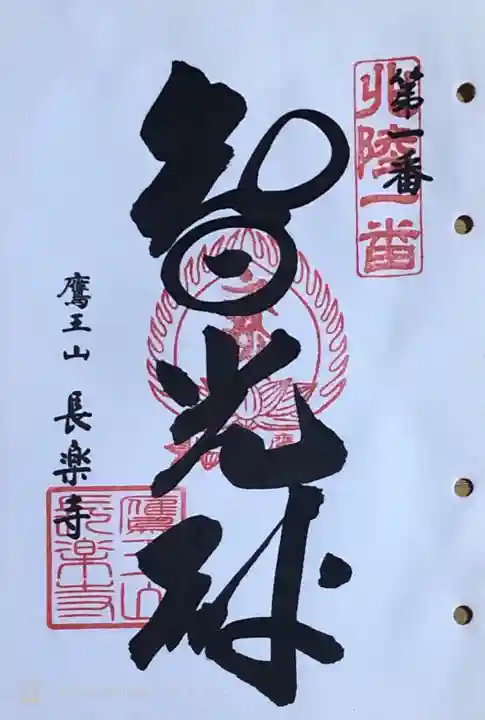 第一番
北陸一番
智光殿
鷹王山 長楽寺
鷹王山
長楽寺